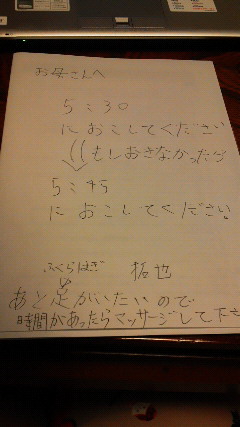 お母さんへ
5:30
におこしてください
もしおきなかったら
5:45
におこしてください。
ふくらはぎ
拓也
あと足がいたいので
時間があったらマッサージして下さ